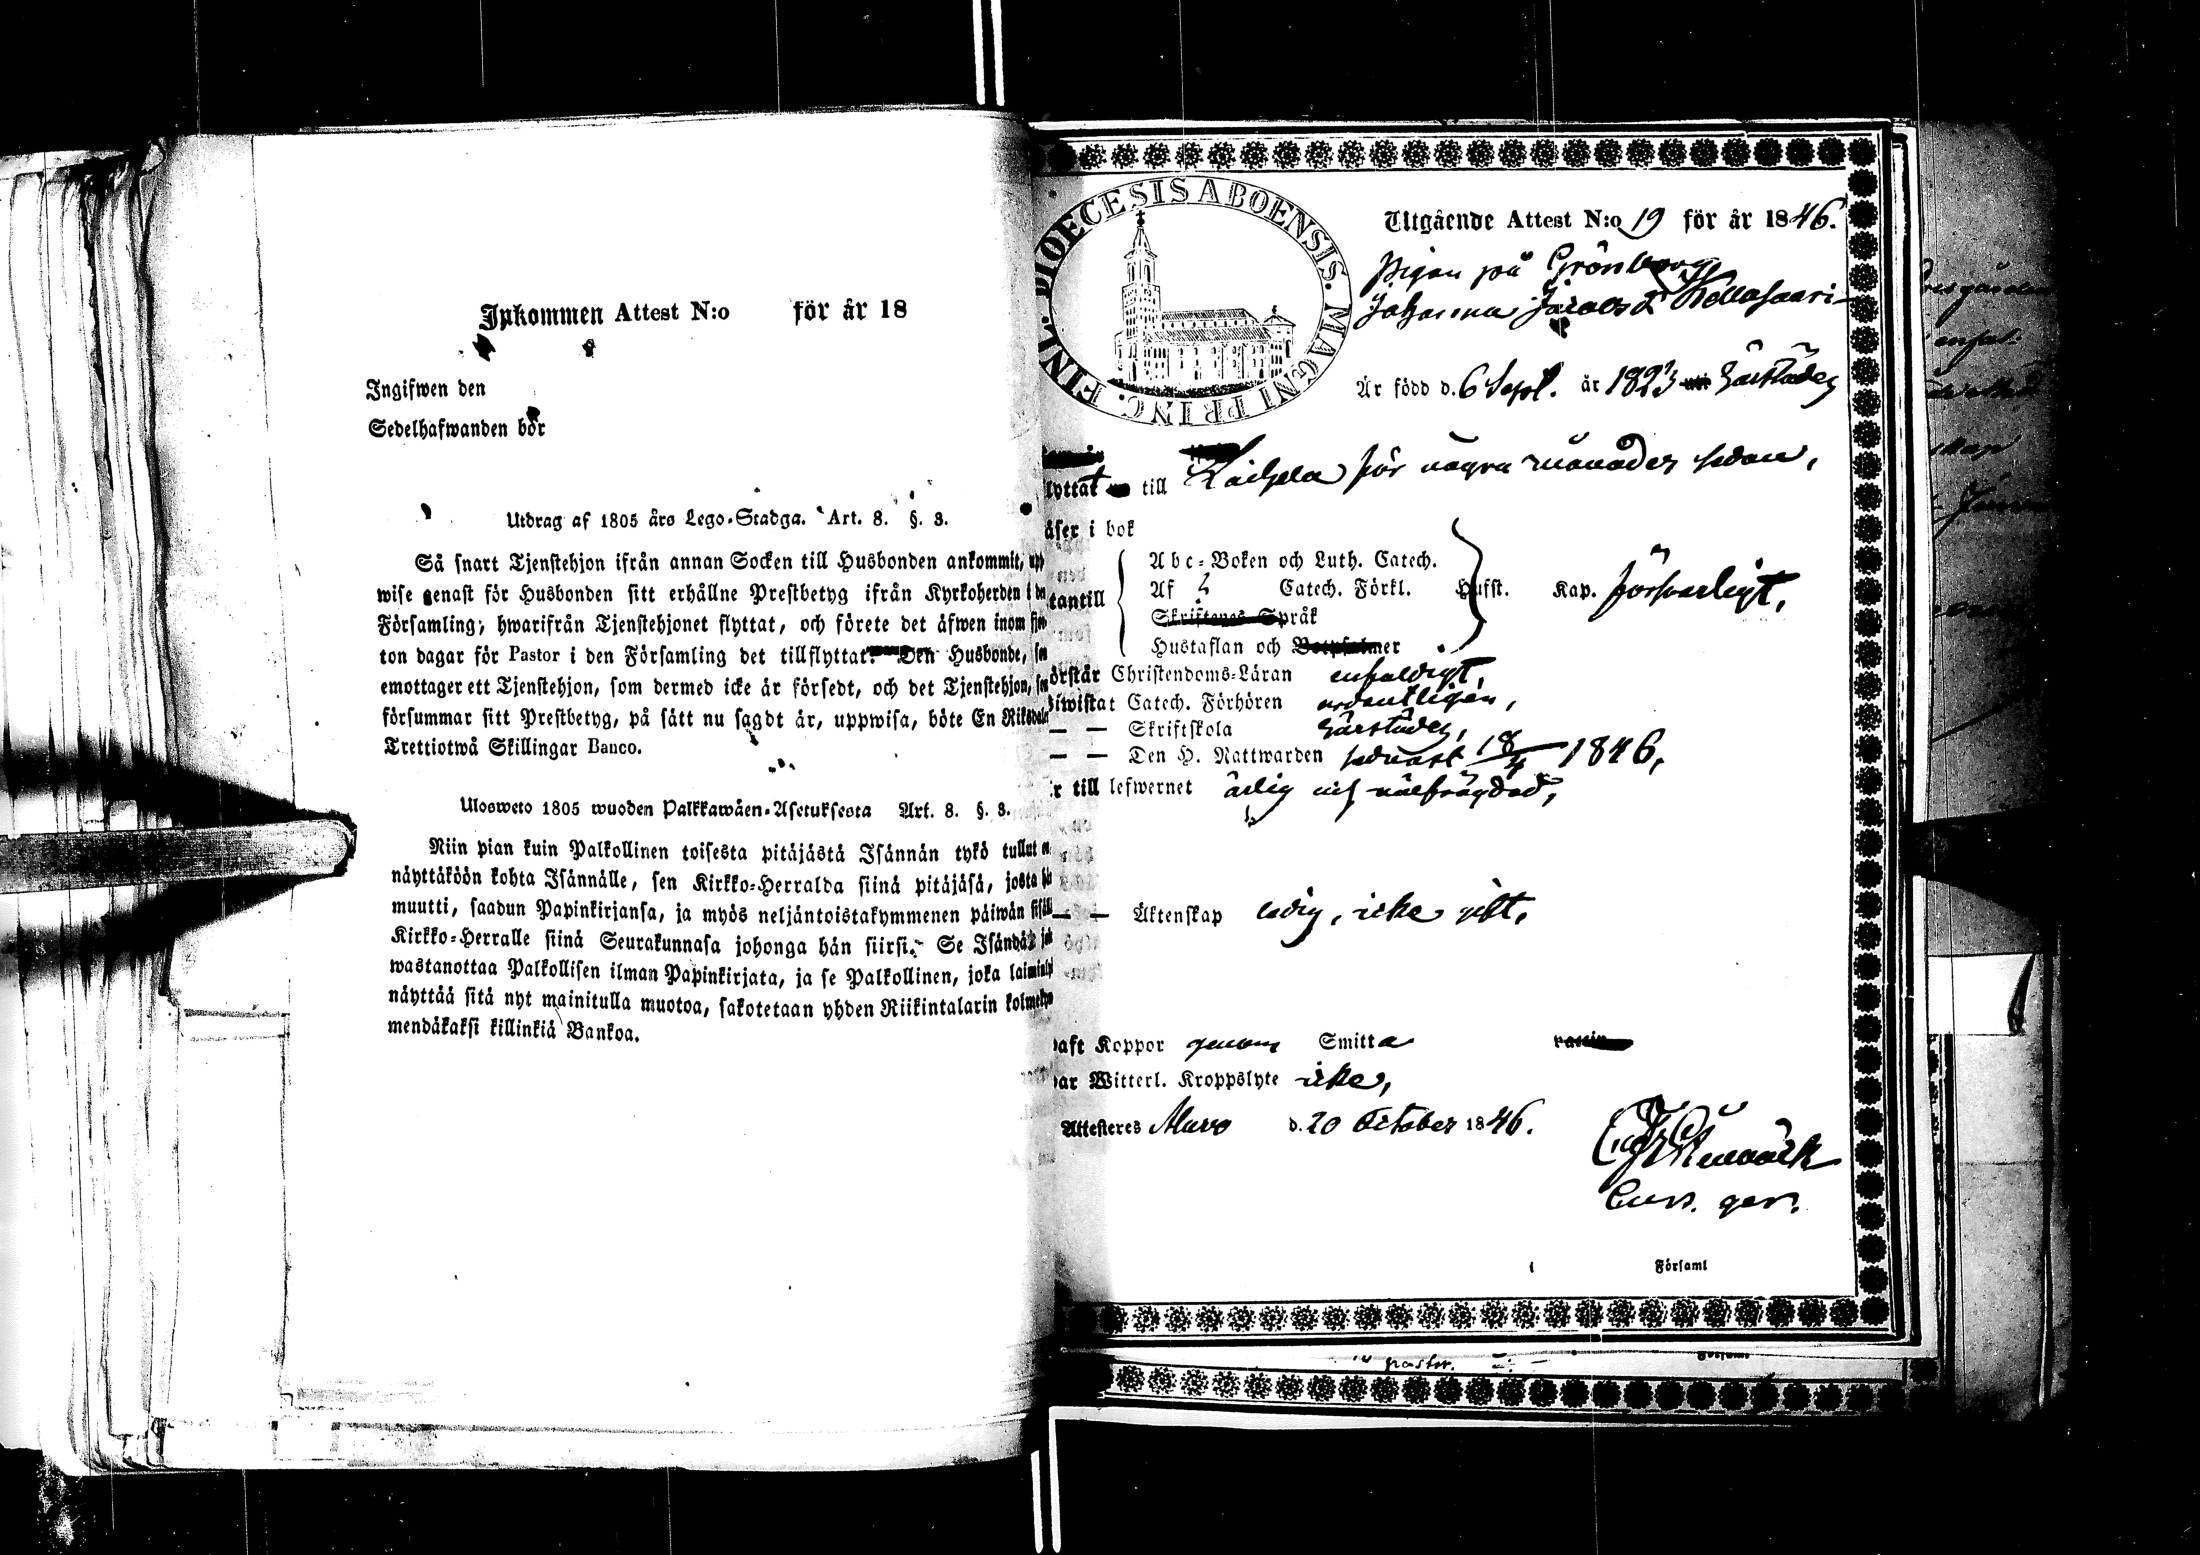 Inkommen Attest N:o för år 18
Ingifwen den
Sedelhafwanden bör
Utdrag af 1805 års Lego-Stadga. Art. 8. §. 3.
Så snart Tjenstehjon ifrån annan Socken till Husbonden ankommit, upp
wise genast för Husbonden sitt erhållne Prestbetyg ifrån Kyrkoherden i den
Församling, hwarifrån Tjenstehjonet flyttat, och förete det äfwen inom fjor
ton dagar för Pastor i den Församling det tillflyttat. Den Husbonde, som
emottager ett Tjenstehjon, som dermed icke är försedt, och det Tjenstehjon, som
försummar sitt Prestbetyg, på sätt nu sagdt är, uppwisa, böte En Riksdaler
Trettiotwå Skillingar Banco.
Ulosweto 1805 wuoden Palkkawäen-Asetuksesta Art. 8. §. 3.
Niin pian kuin Palkollinen toisesta pitäjästä Isännän tykö tullut
näyttäköön kohta Isännälle, sen Kirkko-Herralda siinä pitäjäsä, josta hän
muutti, saadun Papinkirjansa, ja myös neljäntoistakymmenen päiwän sisällä
Kirkko-Herralle siinä Seurakunnasa johonga hän siirsi. Se Isändä, joka
wastanottaa Palkollisen ilman Papinkirjata, ja se Palkollinen, joka
näyttää sitä nyt mainitulla muotoa, sakotetaan yhden Riikintalarin
mendäkaksi killinkiä Bankoa.
DIOECESIS ABOENSIS. MAGNI PRINC. FINL.
Utgående Attest N:o 19 för år 1846.
Pigan på Grönberg
Johanna Jacobsd:r Kellosaari
Är född d. 6 Sept. år 1823 härstädes
lyttat till Laihela för några månader sedan,
äser i bok
tantill
Abc-Boken och Luth. Catech.
Af Catech. Förkl. Hufst. Kap. försvarligt,
Skriftenes Språk
Hustaflan och
örstår Christendoms-Läran enfaldigt,
iwistat Catech. Förhören ordentligen,
— — Skriftskola härstädes,
— — Den H. Nattwarden sednast 18/4 1846,
r till lefwernet ärlig och välfrägdad,
— — Äktenskap ledig, icke gift,
aft Koppor genom Smitta
ar Witterl. Kroppslyte icke,
Attesteras Alavo d. 20 October 1846.
Curs. ger.
Församl
pastor.